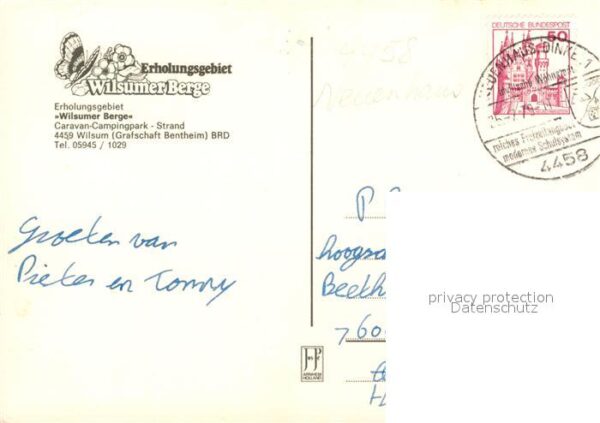 Erholungsgebiet
Wilsumer Berge
Erholungsgebiet
»Wilsumer Berge«
Caravan-Campingpark - Strand
4459 Wilsum (Grafschaft Bentheim) BRD
Tel. 05945 / 1029
Groeten van
Pieter en Tonny
4458
Neuenhaus
50
DEUTSCHE BUNDESPOST
NEUENHAUS, DINKEL 1
79
reiches Freizeitangebot
modernes Schulsystem
4458
P
Hoogsr
Beeth
760
privacy protection
Datenschutz
JosPé
ARNHEM
HOLLAND